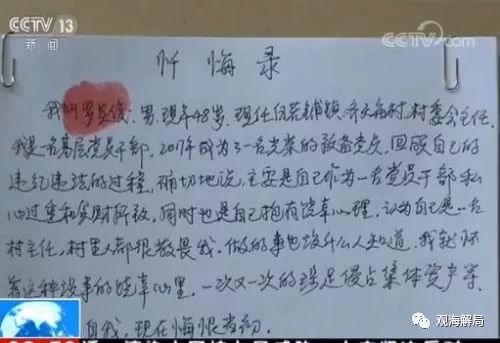 CCTV 13
新闻
CCTV.com
忏悔录
我叫罗 俊，男，现年48岁，现任 镇 村，村委会主任，
我是一名基层党员干部，2017年成为了一名光荣的预备党员，回顾自己的
违纪违法的过程，确切地说，主要是自己作为一名党员干部私
心过重和贪财所致，同时也是自己抱有侥幸心理，认为自己是一名
村主任，村里人都很敬畏我，做的事也没什么人知道，我就怀
着这种 的侥幸心里，一次又一次的 足侵占集体资产
自我，现在悔恨当初．
观海解局